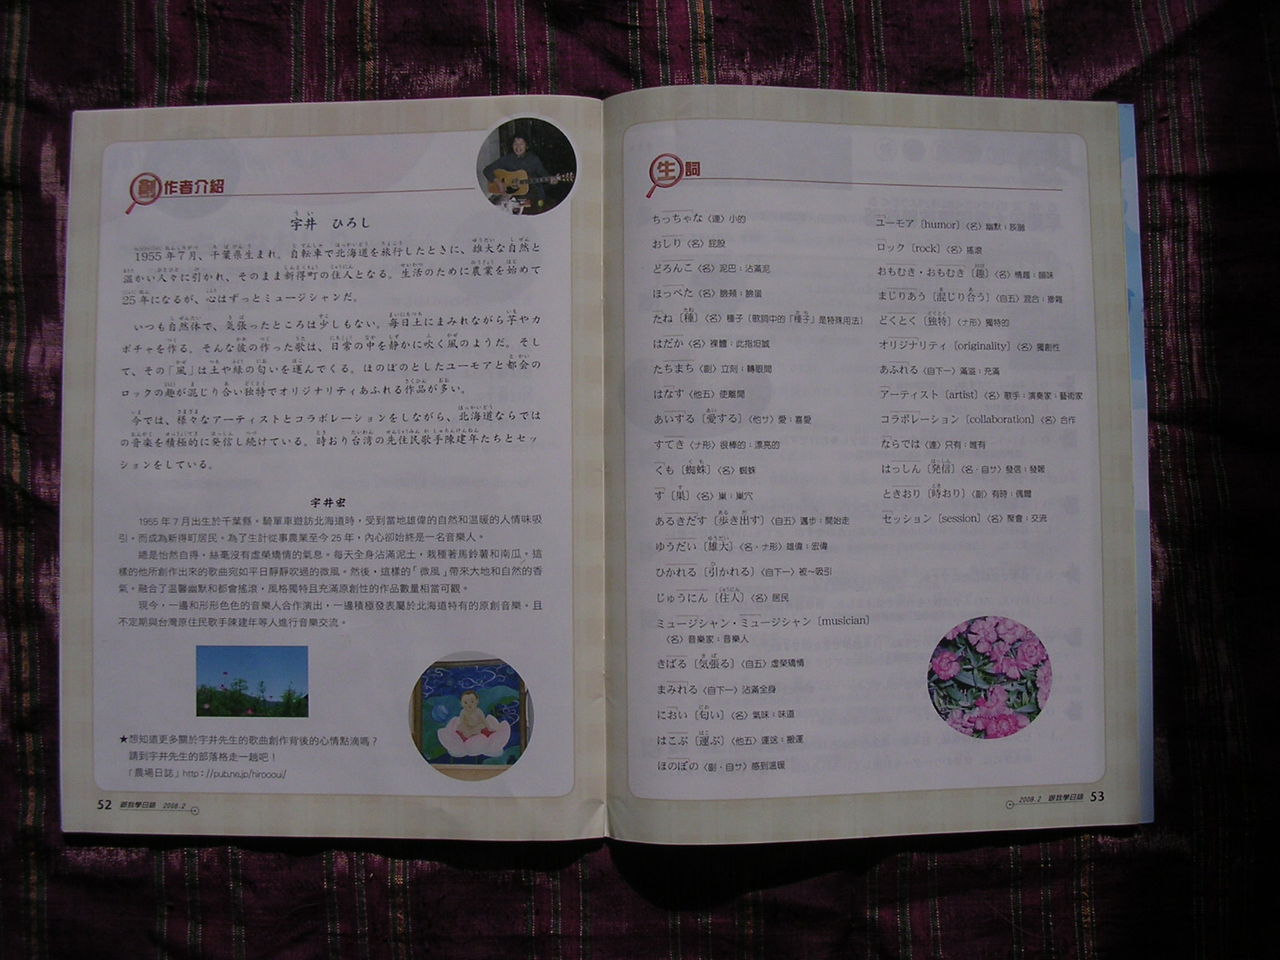 創作者介紹
宇井　ひろし
1955年7月、千葉県生まれ。自転車で北海道を旅行したときに、雄大な自然と
温かい人々に引かれ、そのまま新得町の住人となる。生活のために農業を始めて
25年になるが、心はずっとミュージシャンだ。
いつも自然体で、気張ったところは少しもない。毎日土にまみれながら芋やカ
ボチャを作る。そんな彼の作った歌は、日常の中を静かに吹く風のようだ。そし
て、その「風」は土や緑の匂いを運んでくる。ほのぼのとしたユーモアと都会の
ロックの趣が混じり合い独特でオリジナリティあふれる作品が多い。
今では、様々なアーティストとコラボレーションをしながら、北海道ならでは
の音楽を積極的に発信し続けている。時おり台湾の先住民歌手陳建年たちとセッ
ションをしている。
宇井宏
1955年7月出生於千葉縣。騎單車遊訪北海道時，受到當地雄偉的自然和溫暖的人情味吸
引，而成為新得町居民。為了生計從事農業至今25年，內心卻始終是一名音樂人。
總是怡然自得，絲毫沒有虛榮矯情的氣息。每天全身沾滿泥土，栽種著馬鈴薯和南瓜。這
樣的他所創作出來的歌曲宛如平日靜靜吹過的微風。然後，這樣的「微風」帶來大地和自然的香
氣，融合了溫馨幽默和都會搖滾，風格獨特且充滿原創性的作品數量相當可觀。
現今，一邊和形形色色的音樂人合作演出，一邊積極發表屬於北海道特有的原創音樂。且
不定期與台灣原住民歌手陳建年等人進行音樂交流。
★想知道更多關於宇井先生的歌曲創作背後的心情點滴嗎？
請到宇井先生的部落格走一趟吧！
「農場日誌」http://pub.ne.jp/hiroooui/
52 2008.2
生詞
ちっちゃな〈連〉小的
おしり〈名〉屁股
どろんこ〈名〉泥巴；沾滿泥
ほっぺた〈名〉臉頰；臉蛋
たね［種］〈名〉種子（歌詞中的「種子」是特殊用法）
はだか〈名〉裸體；此指坦誠
たちまち〈副〉立刻；轉眼間
はなす〈他五〉使離開
あいする［愛する］〈他サ〉愛；喜愛
すてき〈ナ形〉很棒的；漂亮的
くも［蜘蛛］〈名〉蜘蛛
す［巣］〈名〉巢；巢穴
あるきだす［歩き出す］〈自五〉邁步；開始走
ゆうだい［雄大］〈名・ナ形〉雄偉；宏偉
ひかれる［引かれる］〈自下一〉被～吸引
じゅうにん［住人］〈名〉居民
ミュージシャン・ミュージシャン［musician］
〈名〉音樂家；音樂人
きばる［気張る］〈自五〉虛榮矯情
まみれる〈自下一〉沾滿全身
におい［匂い］〈名〉氣味；味道
はこぶ［運ぶ］〈他五〉運送；搬運
ほのぼの〈副・自サ〉感到溫暖
ユーモア［humor］〈名〉幽默；詼諧
ロック［rock］〈名〉搖滾
おもむき・おもむき［趣］〈名〉情趣；韻味
まじりあう［混じり合う］〈自五〉混合；摻雜
どくとく［独特］〈ナ形〉獨特的
オリジナリティ［originality］〈名〉獨創性
あふれる〈自下一〉滿溢；充滿
アーティスト［artist］〈名〉歌手；演奏家；藝術家
コラボレーション［collaboration］〈名〉合作
ならでは〈連〉只有；唯有
はっしん［発信］〈名・自サ〉發信；發報
ときおり［時おり］〈副〉有時；偶爾
セッション［session］〈名〉聚會；交流
2008.2 53